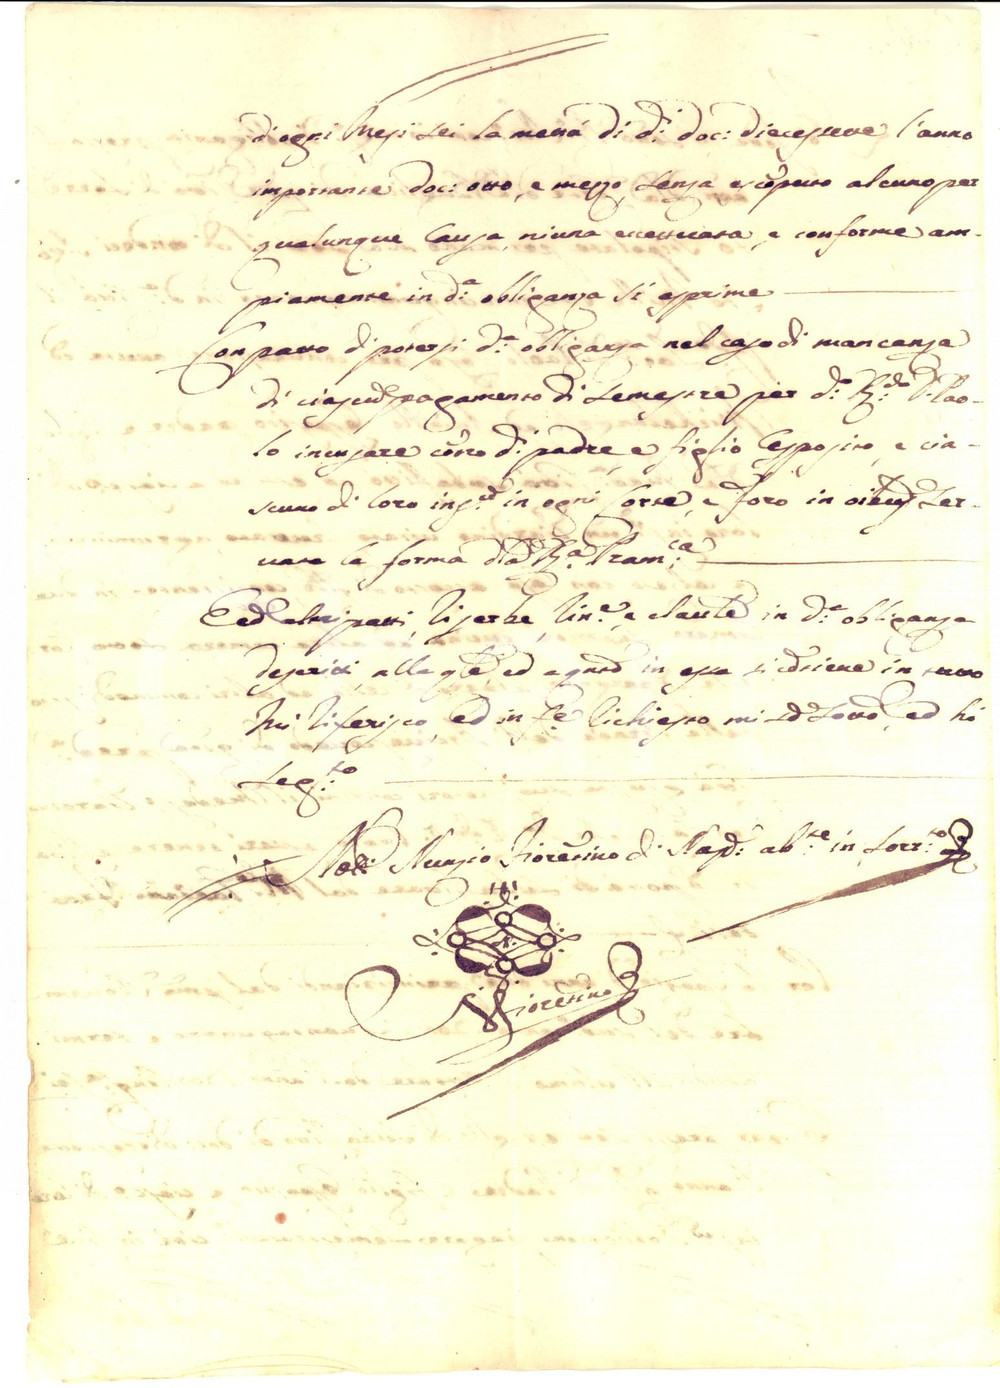 di ogni Mesi sei la metà di d.i doc: diecessette l'anno
importante doc: otto, e mezzo, senza escomputo alcuno per
qualunque causa, niuna eccettuata, e conforme am-
piamente in d.a obliganza si esprime
Con patto di potersi d.a obliganza nel caso di mancanza
di pagamento di semestre per d.o R.do D. Pao-
lo incusare contro di padre, e figlio Esposito, e cia-
scuno di loro in ogni Corte, e foro in ser-
vata la forma R.a Pram.ca
Et ed altri patti, riserbe, rin.e, e clausole in d.a obliganza
descritti, alla q.le, ed a q.nto in essa si contiene in tutto
mi riferisco, ed in fe richiesto, mi sottos., ed hò
seg.to
Not.r Nunzio Fiorentino di Nap. ab.te in Sorr.to
N. Fiorentino